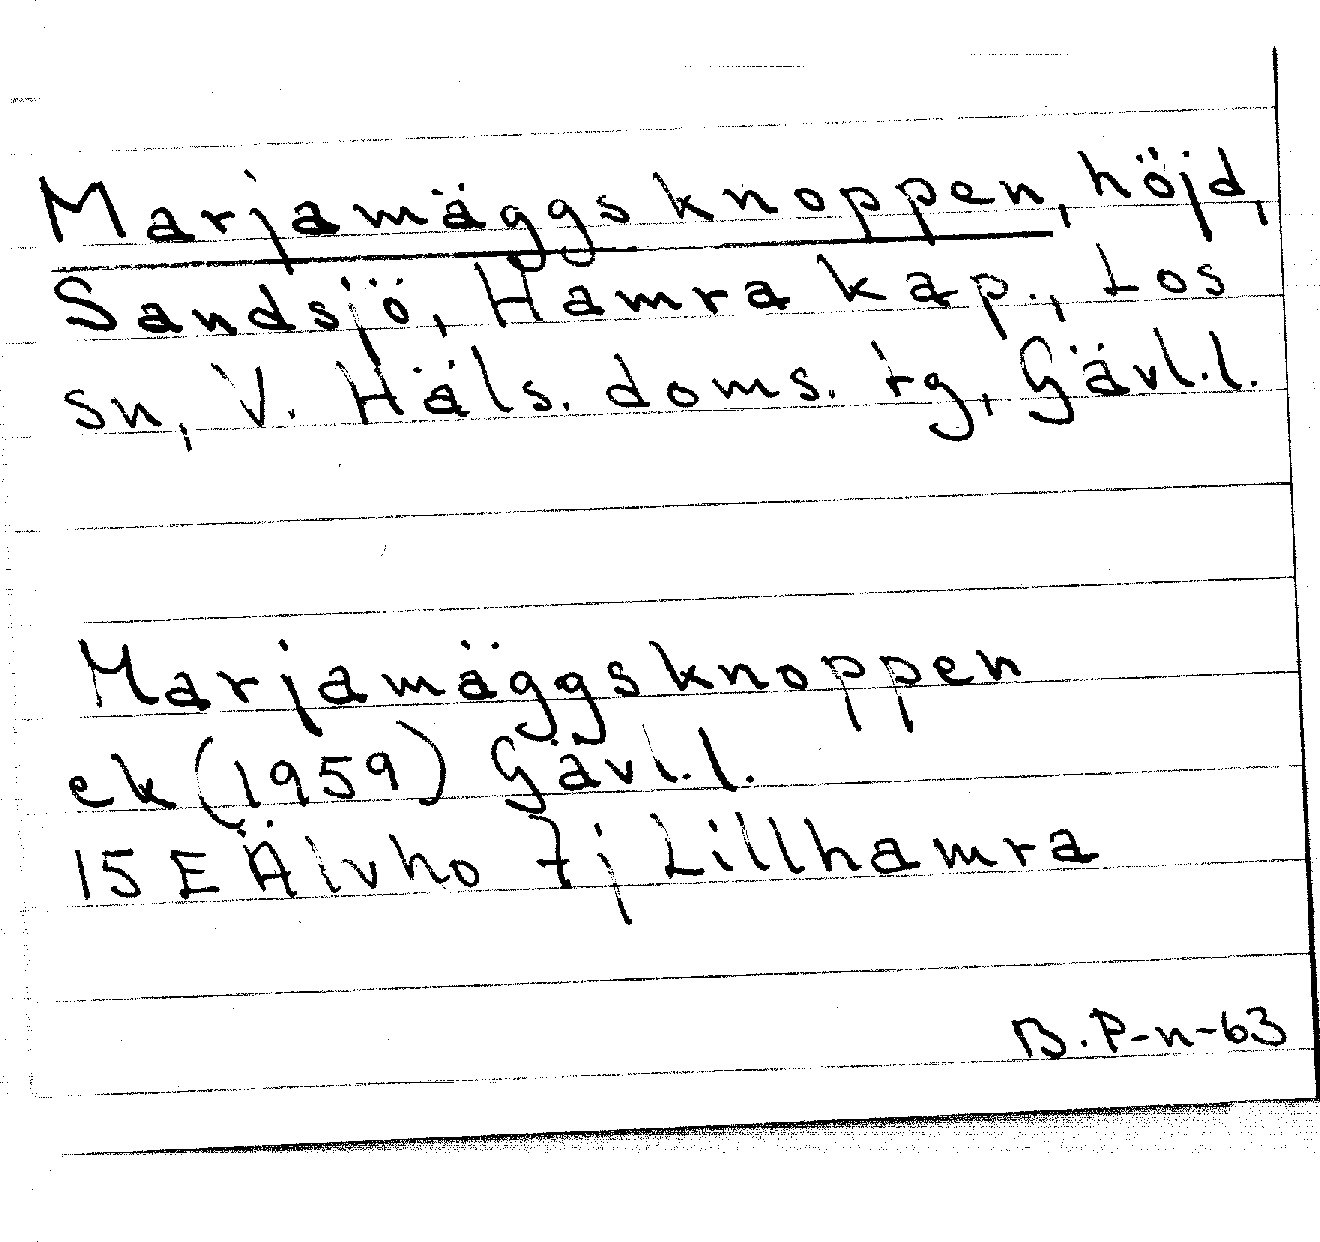 Marjamäggsknoppen, höjd,
Sandsjö, Hamra kap., Los
sn, V. Häls. doms. tg, Gävl.l.
Marjamäggsknoppen
ek (1959) Gävl.l.
15 E Älvho 7j Lillhamra
B. P-n-63